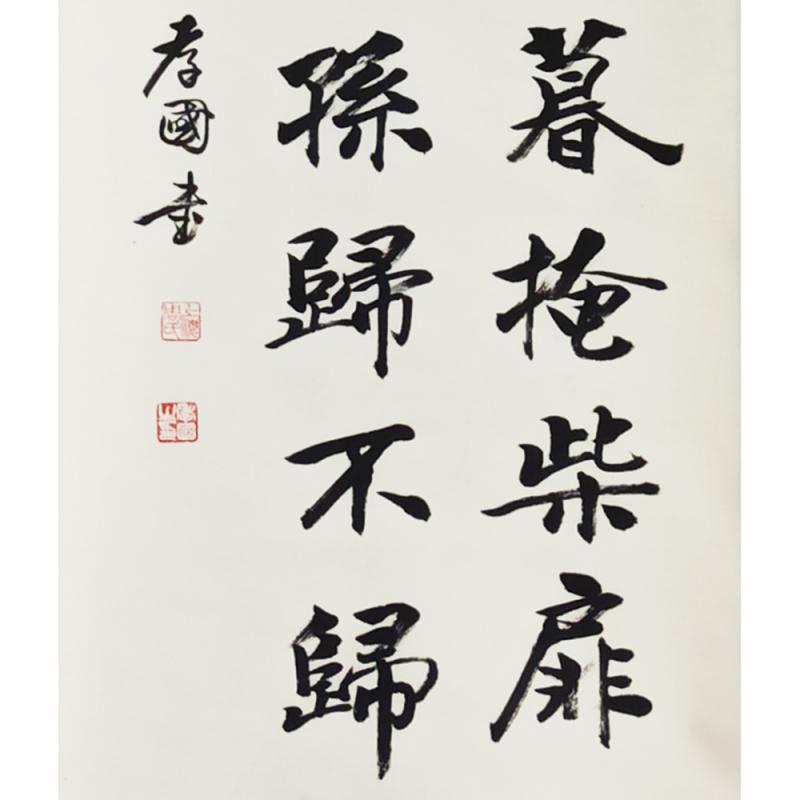 暮掩柴扉
孫歸不歸
孝國书